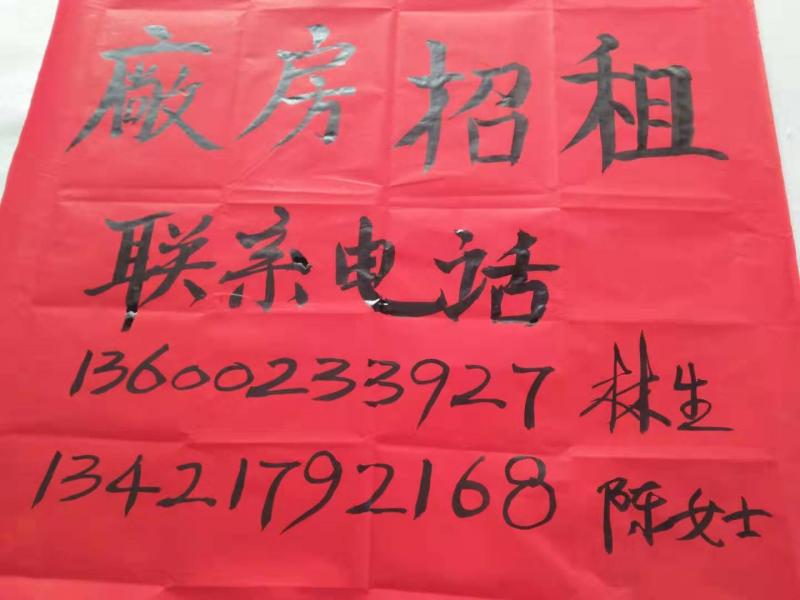 廠房招租
联系电话
13600233927 林生
13421792168 陈女士